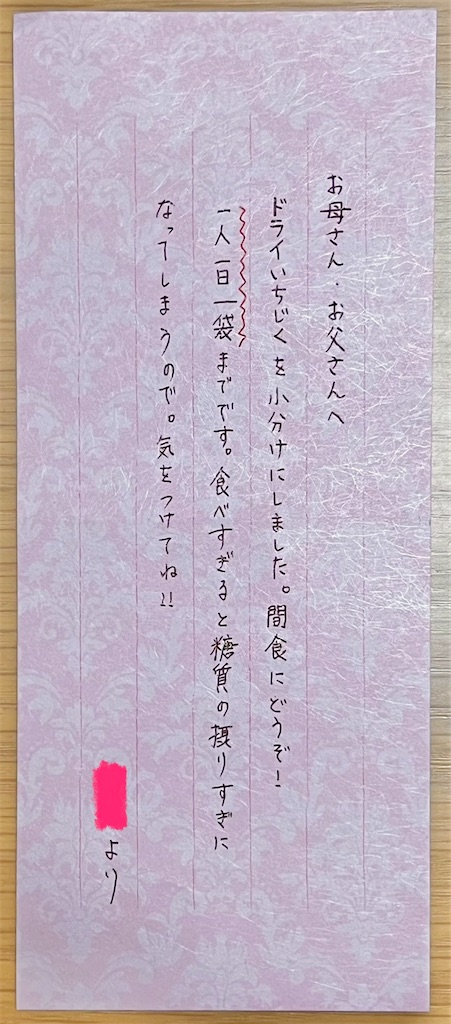 お母さん・お父さんへ
ドライいちじくを小分けにしました。間食にどうぞ!
一人一日一袋までです。食べすぎると糖質の摂りすぎに
なってしまうので。気をつけてね!!
より